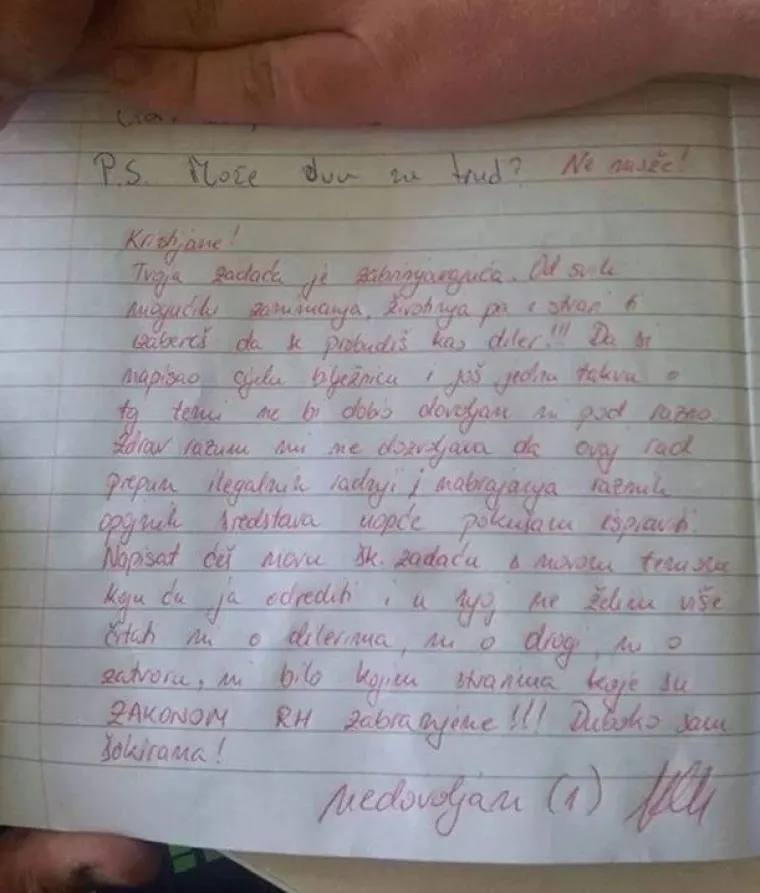 P.S. Može dva za trud? Ne može!
Kristijane!
Tvoja zadaća je zabrinjavajuća. Od svih
mogućih zanimanja, životinja pa i stvari ti
izabereš da se probudiš kao diler!!! Da si
napisao cijelu bilježnicu i još jednu takvu o
toj temi ne bi dobio dovoljan ni pod razno
Zdrav razum mi ne dozvoljava da ovaj rad
prepun ilegalnih radnji i nabrajanja raznih
opojnih sredstava uopće pokušam ispraviti.
Napisat ćeš novu šk. zadaću s novom temom
koju ću ja odrediti i u njoj ne želim više
čitati ni o dilerima, ni o drogi, ni o
zatvoru, ni bilo kojim stvarima koje su
ZAKONOM RH zabranjene!!! Duboko sam
šokirana!
nedovoljan (1)